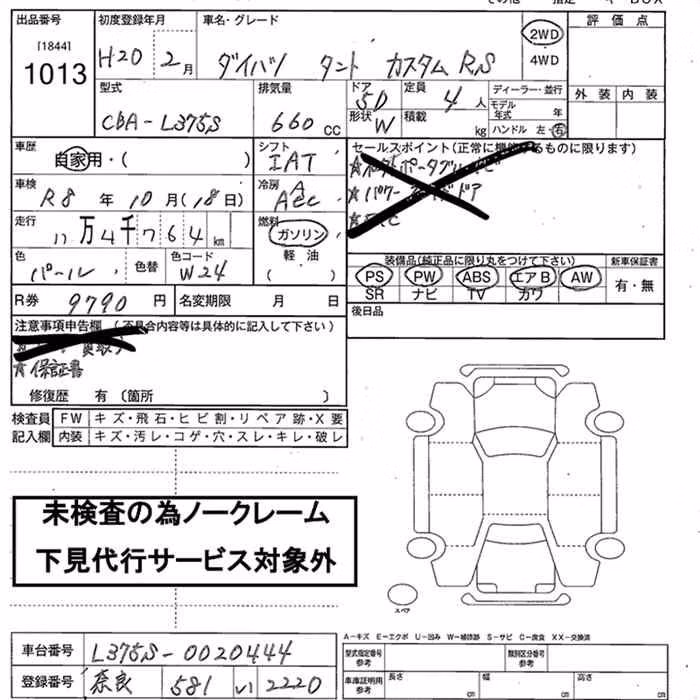 出品番号 初度登録年月 車名・グレード 評価点
[1844]
1013 H20 2月 ダイハツ タント カスタムRS 2WD
4WD
型式 排気量 ドア 5D 定員 4人 ディーラー・並行 外装 内装
CBA-L375S 660cc 形状 W 積載 kg モデル年式 年
ハンドル 左・右
車歴 自家用・( ) シフト IAT セールスポイント(正常に機能するものに限ります)
車検 R8年10月(18日) 冷房 AAC
走行 11万4千764km 燃料 ガソリン
軽油
( )
色 パール 色替 色コード W24 装備品(純正品に限り丸をつけて下さい) 新車保証書
PS PW ABS エアB AW 有・無
SR ナビ TV カワ
R券 9790円 名変期限 月 日
後日品
注意事項申告欄 (不具合内容等は具体的に記入して下さい)
☆保証書
修復歴 有(箇所 )
検査員記入欄 FW キズ・飛石・ヒビ割・リペア跡・X要
内装 キズ・汚レ・コゲ・穴・スレ・キレ・破レ
未検査の為ノークレーム
下見代行サービス対象外
スペア
A-キズ E-エクボ U-凹み W-補修跡 S-サビ C-腐食 XX-交換済
車台番号 L375S-0020444 型式指定番号参考 類別区分番号参考
登録番号 奈良 581 い 2220 車庫証明用参考 長さ cm 幅 cm 高さ cm